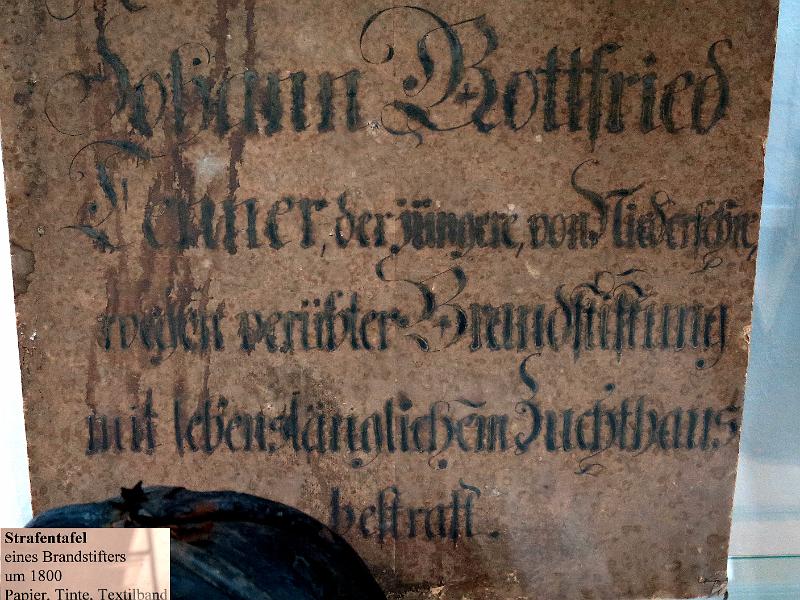 Johann Gottfried
Tenner, der jüngere, von
wegen verübter Brandstiftung
mit lebenslänglichem Zuchthaus
bestraft.
Strafentafel
eines Brandstifters
um 1800
Papier, Tinte, Textilband